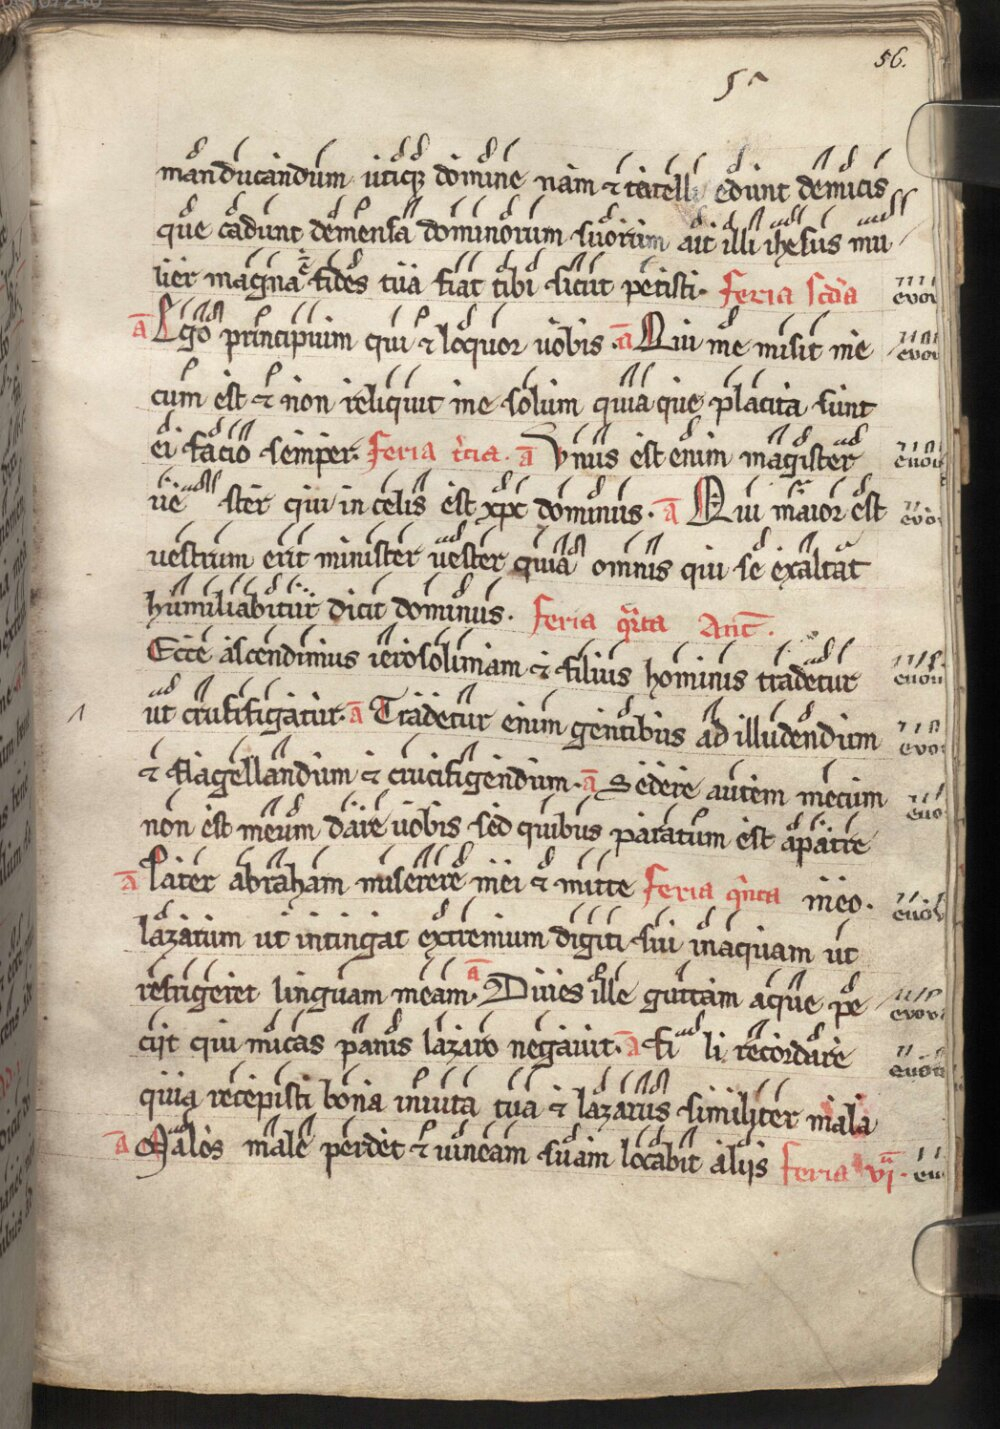 56.
manducandum utiqꝫ domine nam ⁊ catelli edunt demicis
que cadunt demensa dominorum suorum ait illi ihesus mu
lier magna ē fides tua fiat tibi sicut petisti. feria scďa evou
ā Ego principium qui ⁊ loquor uobis. ā Qui me misit me evou
cum est ⁊ non reliquit me solum quia que placita sunt
ei facio semper. feria t̄cia. ā Vnus est enim magister euou
ue ster qui in celis est xp̄c dominus. ā Qui maior est evo
uestrum erit minister uester quia omnis qui se exaltat
humiliabitur dicit dominus. feria q̄rta Ant̄.
Ecce ascendimus ierosolimam ⁊ filius hominis tradetur euou
ut crucifigatur. ā Tradetur enim gentibus ad illudendum evo
⁊ flagellandum ⁊ crucifigendum. ā Sedere autem mecum euo
non est meum dare uobis sed quibus paratum est apatre
ā Pater abraham miserere mei ⁊ mitte feria q̄nta meo. euou
lazarum ut intingat extremum digiti sui inaquam ut
refrigeret linguam meam. ā Diues ille guttam aque pe evov
ciit qui micas panis lazaro negauit. ā fi li recordare euou
quia recepisti bona inuita tua ⁊ lazarus similiter mala
ā Malos male perdet ⁊ uineam suam locabit aliis feria vi. eu